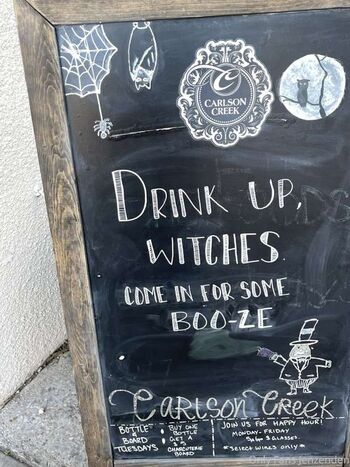 C
CARLSON
CREEK
DRINK UP,
WITCHES.
COME IN FOR SOME
BOO-ZE
Carlson Creek
BOTTLE
&
BOARD
TUESDAYS
BUY ONE
BOTTLE
GET A
$5
CHARCUTERIE
BOARD
JOIN US FOR HAPPY HOUR!
MONDAY-FRIDAY
GLASSES
*SELECT WINES ONLY*